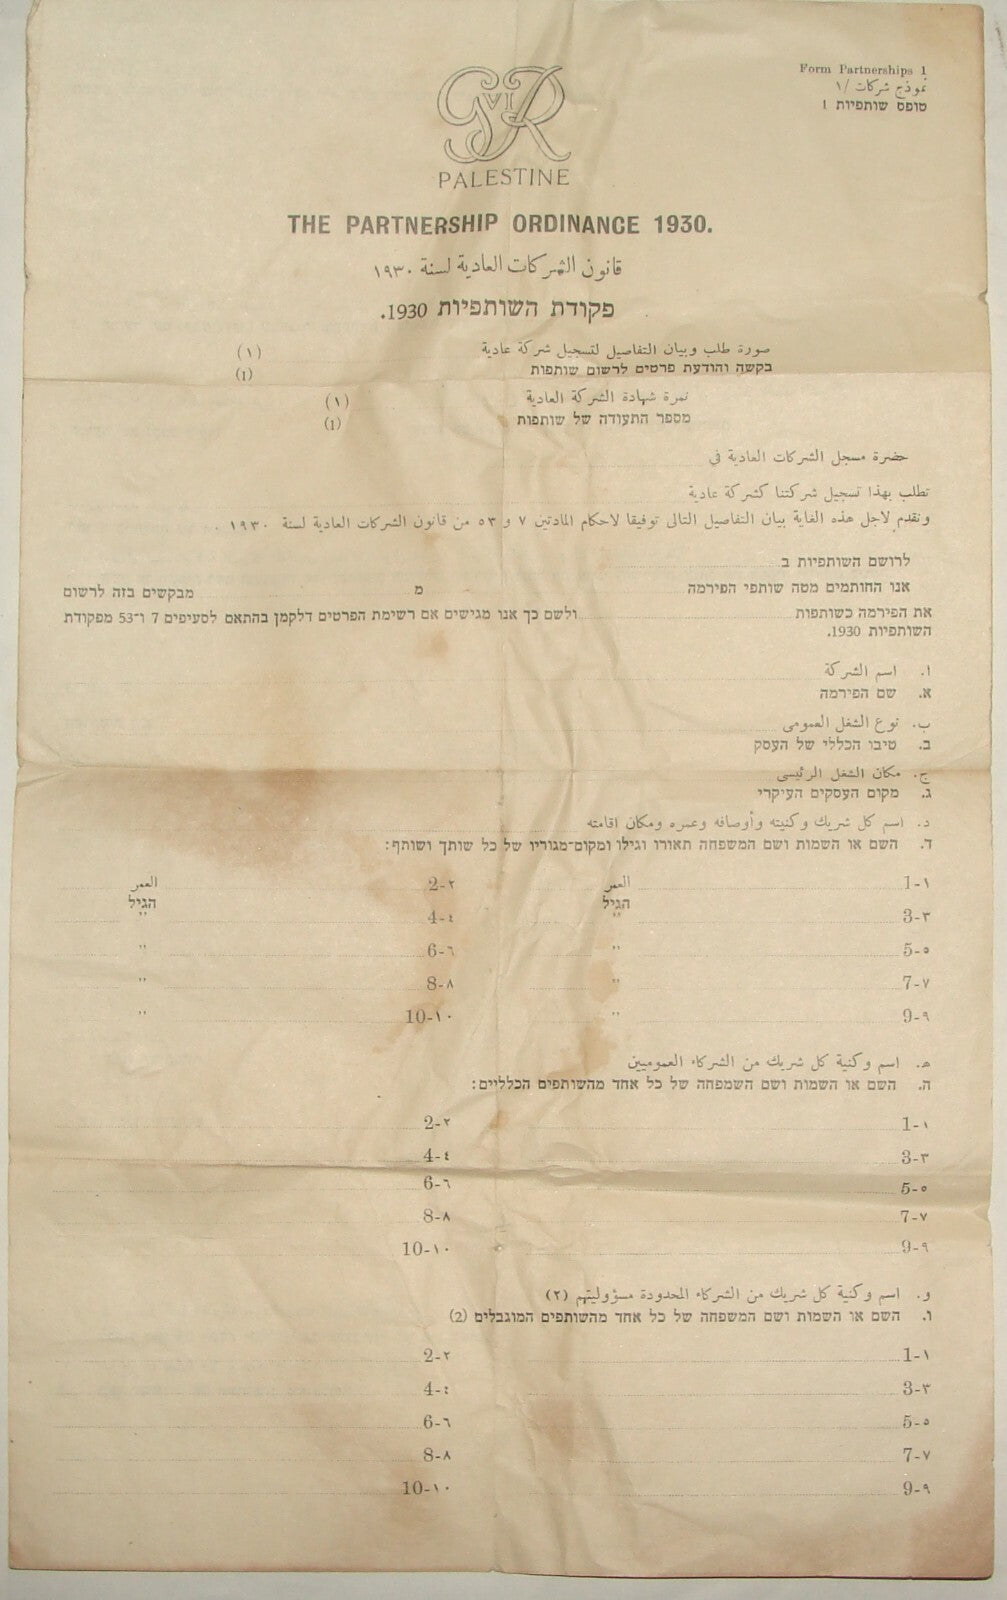 Form Partnerships 1
نموذج شركات /١
טופס שותפיות 1
GVIR
PALESTINE
THE PARTNERSHIP ORDINANCE 1930.
قانون الشركات العادية لسنة ١٩٣٠
פקודת השותפיות 1930.
صورة طلب وبيان التفاصيل لتسجيل شركة عادية (١)
בקשה והודעת פרטים לרשום שותפות (1)
نمرة شهادة الشركة العادية (١)
מספר התעודה של שותפות (1)
حضرة مسجل الشركات العادية في
تطلب بهذا تسجيل شركتنا كشركة عادية
ونقدم لاجل هذه الغاية بيان التفاصيل التالى توفيقا لاحكام المادتين ٧ و ٥٣ من قانون الشركات العادية لسنة ١٩٣٠ .
לרושם השותפיות ב
אנו החותמים מטה שותפי הפירמה מ מבקשים בזה לרשום
את הפירמה כשותפות ולשם כך אנו מגישים אם רשימת הפרטים דלקמן בהתאם לסעיפים 7 ו־53 מפקודת
השותפיות 1930.
ا. اسم الشركة
א. שם הפירמה
ب. نوع الشغل العمومى
ב. טיבו הכללי של העסק
ج. مكان الشغل الرئيسى
ג. מקום העסקים העיקרי
د. اسم كل شريك وكنيته وأوصافه وعمره ومكان اقامته
ד. השם או השמות ושם המשפחה תאורו וגילו ומקום־מגוריו של כל שותך ושותף:
1-١ العمر 2-٢ العمر
הגיל הגיל
3-٣ " 4-٤ "
5-٥ " 6-٦ "
7-٧ " 8-٨ "
9-٩ " 10-١٠ "
ه. اسم وكنية كل شريك من الشركاء العموميين
ה. השם או השמות ושם השמפחה של כל אחד מהשותפים הכלליים:
1-١ 2-٢
3-٣ 4-٤
5-٥ 6-٦
7-٧ 8-٨
9-٩ 10-١٠
و. اسم وكنية كل شريك من الشركاء المحدودة مسؤوليتهم (٢)
ו. השם או השמות ושם המשפחה של כל אחד מהשותפים המוגבלים (2)
1-١ 2-٢
3-٣ 4-٤
5-٥ 6-٦
7-٧ 8-٨
9-٩ 10-١٠